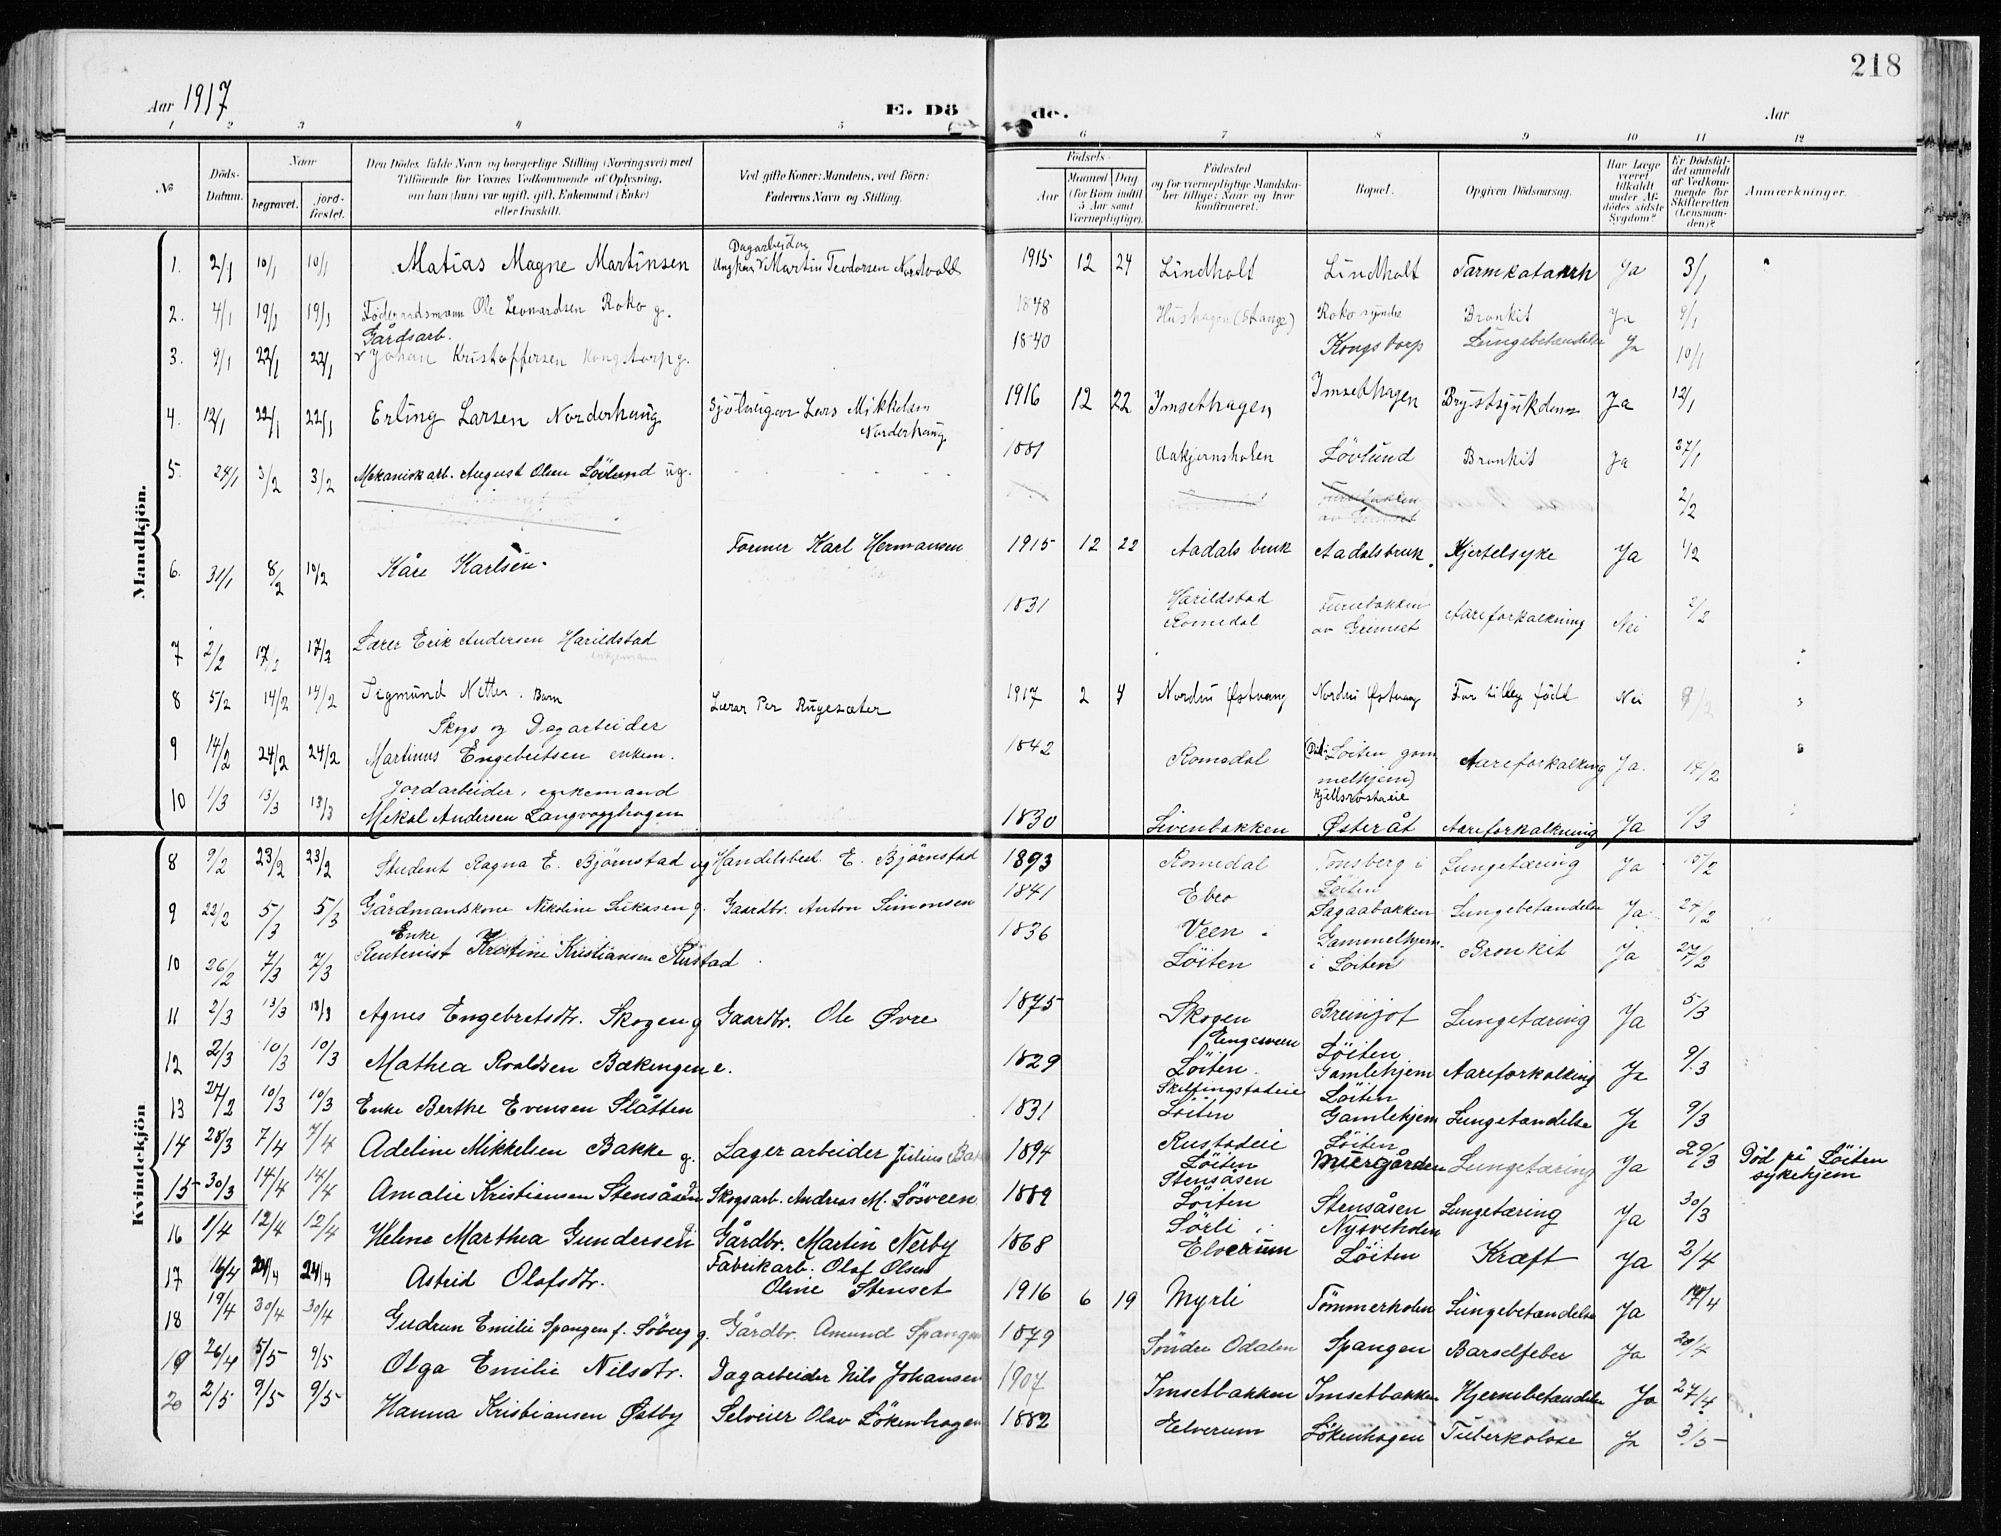 218
Aar 1917 E. Dö de. Aar
1 2 3 4 5 6 7 8 9 10 11 12
No
Döds-Datum.
Naar
begravet. jord-fæstet.
Den Dödes fulde Navn og borgerlige Stilling (Næringsvei) med
Tilföiende for Voxnes Vedkommende af Oplysning,
om han (hun) var ugift, gift, Enkemand (Enke)
eller fraskilt.
Ved gifte Koner: Mandens, ved Börn:
Faderens Navn og Stilling.
Födsels-
Aar Maaned Dag
(for Börn indtil
5 Aar samt
Værnepligtige).
Födested
og for værnepligtige Mandska-
ber tillige: Naar og hvor
konfirmeret.
Bopæl.
Opgiven Dödsaarsag.
Har Læge
været
tilkaldt
under Af-
dödes sidste
Sygdom?
Er Dödsfal-
det anmeldt
af Vedkom-
mende for
Skifteretten
(Lensman-
den)?
Anmærkninger.
Mandkjön.
1. 2/1 10/1 10/1 Matias Magne Martinsen Dagarbeider Ungkar Martin Teodorsen Nordvold 1915 12 24 Lindholt Lindholt Tarmkatarrh Ja 3/1
2. 4/1 19/1 19/1 Föderaadsmann Ole Leonardsen Roko g. 1848 Hushagen (Stange) Roko syndre Bronkit Ja 9/1
3. 9/1 22/1 22/1 Gårdsarb. Johan Kristoffersen Kongstorp g. 1840 Kongstorp Lungebetændelse Ja 10/1
4. 12/1 22/1 22/1 Erling Larsen Norderhaug Sjölveigar Lars Mikkelsen Norderhaug 1916 12 22 Imsethagen Imsethagen Brystsjukdom Ja 12/1
5. 24/1 3/2 3/2 Mekanisk arb. August Olsen Lövlund ug. 1881 Aakjernsholen Lövlund Bronkit Ja 27/1
Furuebakken av Grimset 2/2
6. 31/1 8/2 10/2 Kåre Karlsen. Former Karl Hermansen 1915 12 22 Aadals bruk Aadalsbruk. Hjertelsyke Ja 1/2
7 2/2 17/2 17/2 Lærer Erik Andersen Harildstad enkjemann 1831 Harildstad Romedal Furuebakken av Grimset Aareforkalkning Nei 2/2
8 5/2 14/2 14/2 Sigmund Nitter. Barn Lærar Per Rugesæter 1917 2 4 Nordru Østvang Nordru Østvang For tidleg född Nei 9/2
9 14/2 24/2 24/2 Skogs og Dagarbeider Martinus Engebretsen enkem. 1842 Romedal Löiten gammelhjem) Kjellsrøstaeie Aareforkalking Ja. 14/2
10 1/3 13/3 13/3 Jordarbeider, enkemand Mikal Andersen Langvagghagen 1830 Sivenbakken Østeråt Aareforkalkning Ja 1/3
Kvindekjön
8 9/2 23/2 23/2 Student Ragna E. Björnstad ug Handelsbest. E. Björnstad 1893 Romedal Tonsberg i Löiten Lungetæring Ja 15/2
9 22/2 5/3 5/3 Gårdmandskone Nikoline Lukasen g. Gaardbr. Anton Simonsen 1841 Ebro Sagaabakken Lungebetændelse Ja 27/2
10 26/2 7/3 7/3 Enke Rentenist Kristine Kristiansen Rustad 1836 Veen i Löiten Gammelhjem. i Löiten Bronkit Ja 27/2
11 2/3 13/3 13/3 Agnes Engebretsdtr. Skogen g Gaardbr. Ole Øvre 1875 Skogen Breinjot Lungetæring Ja 5/3
12 2/3 10/3 10/3 Mathea Roaldsen Bækengen e. 1829 Engesveen Löiten. Löiten Gamlehjem Aareforkalking Ja 9/3
13 27/2 10/3 10/3 Enke Berthe Evensen Slåtten 1831 Skillingstadeie Löiten Löiten Gamlehjem Lungetændelse Ja 9/3
14 28/3 7/4 7/4 Adeline Mikkelsen Bakke g. Lagerarbeider Julius Bak 1894 Rustadeie Löiten Löiten Muergården Lungetæring Ja 29/3 Död på Löiten sykehjem
15 30/3 14/4 14/4 Amalie Kristiansen Stensåsen Skogsarb. Andreas M. Lösveen 1889 Stensåsen Löiten Stensåsen Lungetæring Ja 30/3
16 1/4 12/4 12/4 Helene Marthea Gundersen Gårdbr. Martin Nerby 1868 Sörli i Elverum Nysveholen Löiten Kræft Ja 2/4
17 16/4 24/4 24/4 Astrid Olafsdtr. Fabrikarb. Olaf Olsen Oline Stenset 1916 6 19 Myrli Tömmerholen Lungebetændelse Ja 17/4
18 19/4 30/4 30/4 Gudrun Emilie Spangen f. Söberg g. Gårdbr. Amund Spangen 1879 Söndre Odalen Spangen Barselfeber Ja 20/4
19 26/4 5/5 9/5 Olga Emilie Nilsdtr. Dagarbeider Nils Johansen 1907 Imsetbakken Imsetbakken Hjernebetændelse Ja 27/4
20 2/5 9/5 9/5 Hanna Kristiansen Østby Selveier Olav Lökenhagen 1882 Elverum Lökenhagen Tuberkolose Ja 3/5